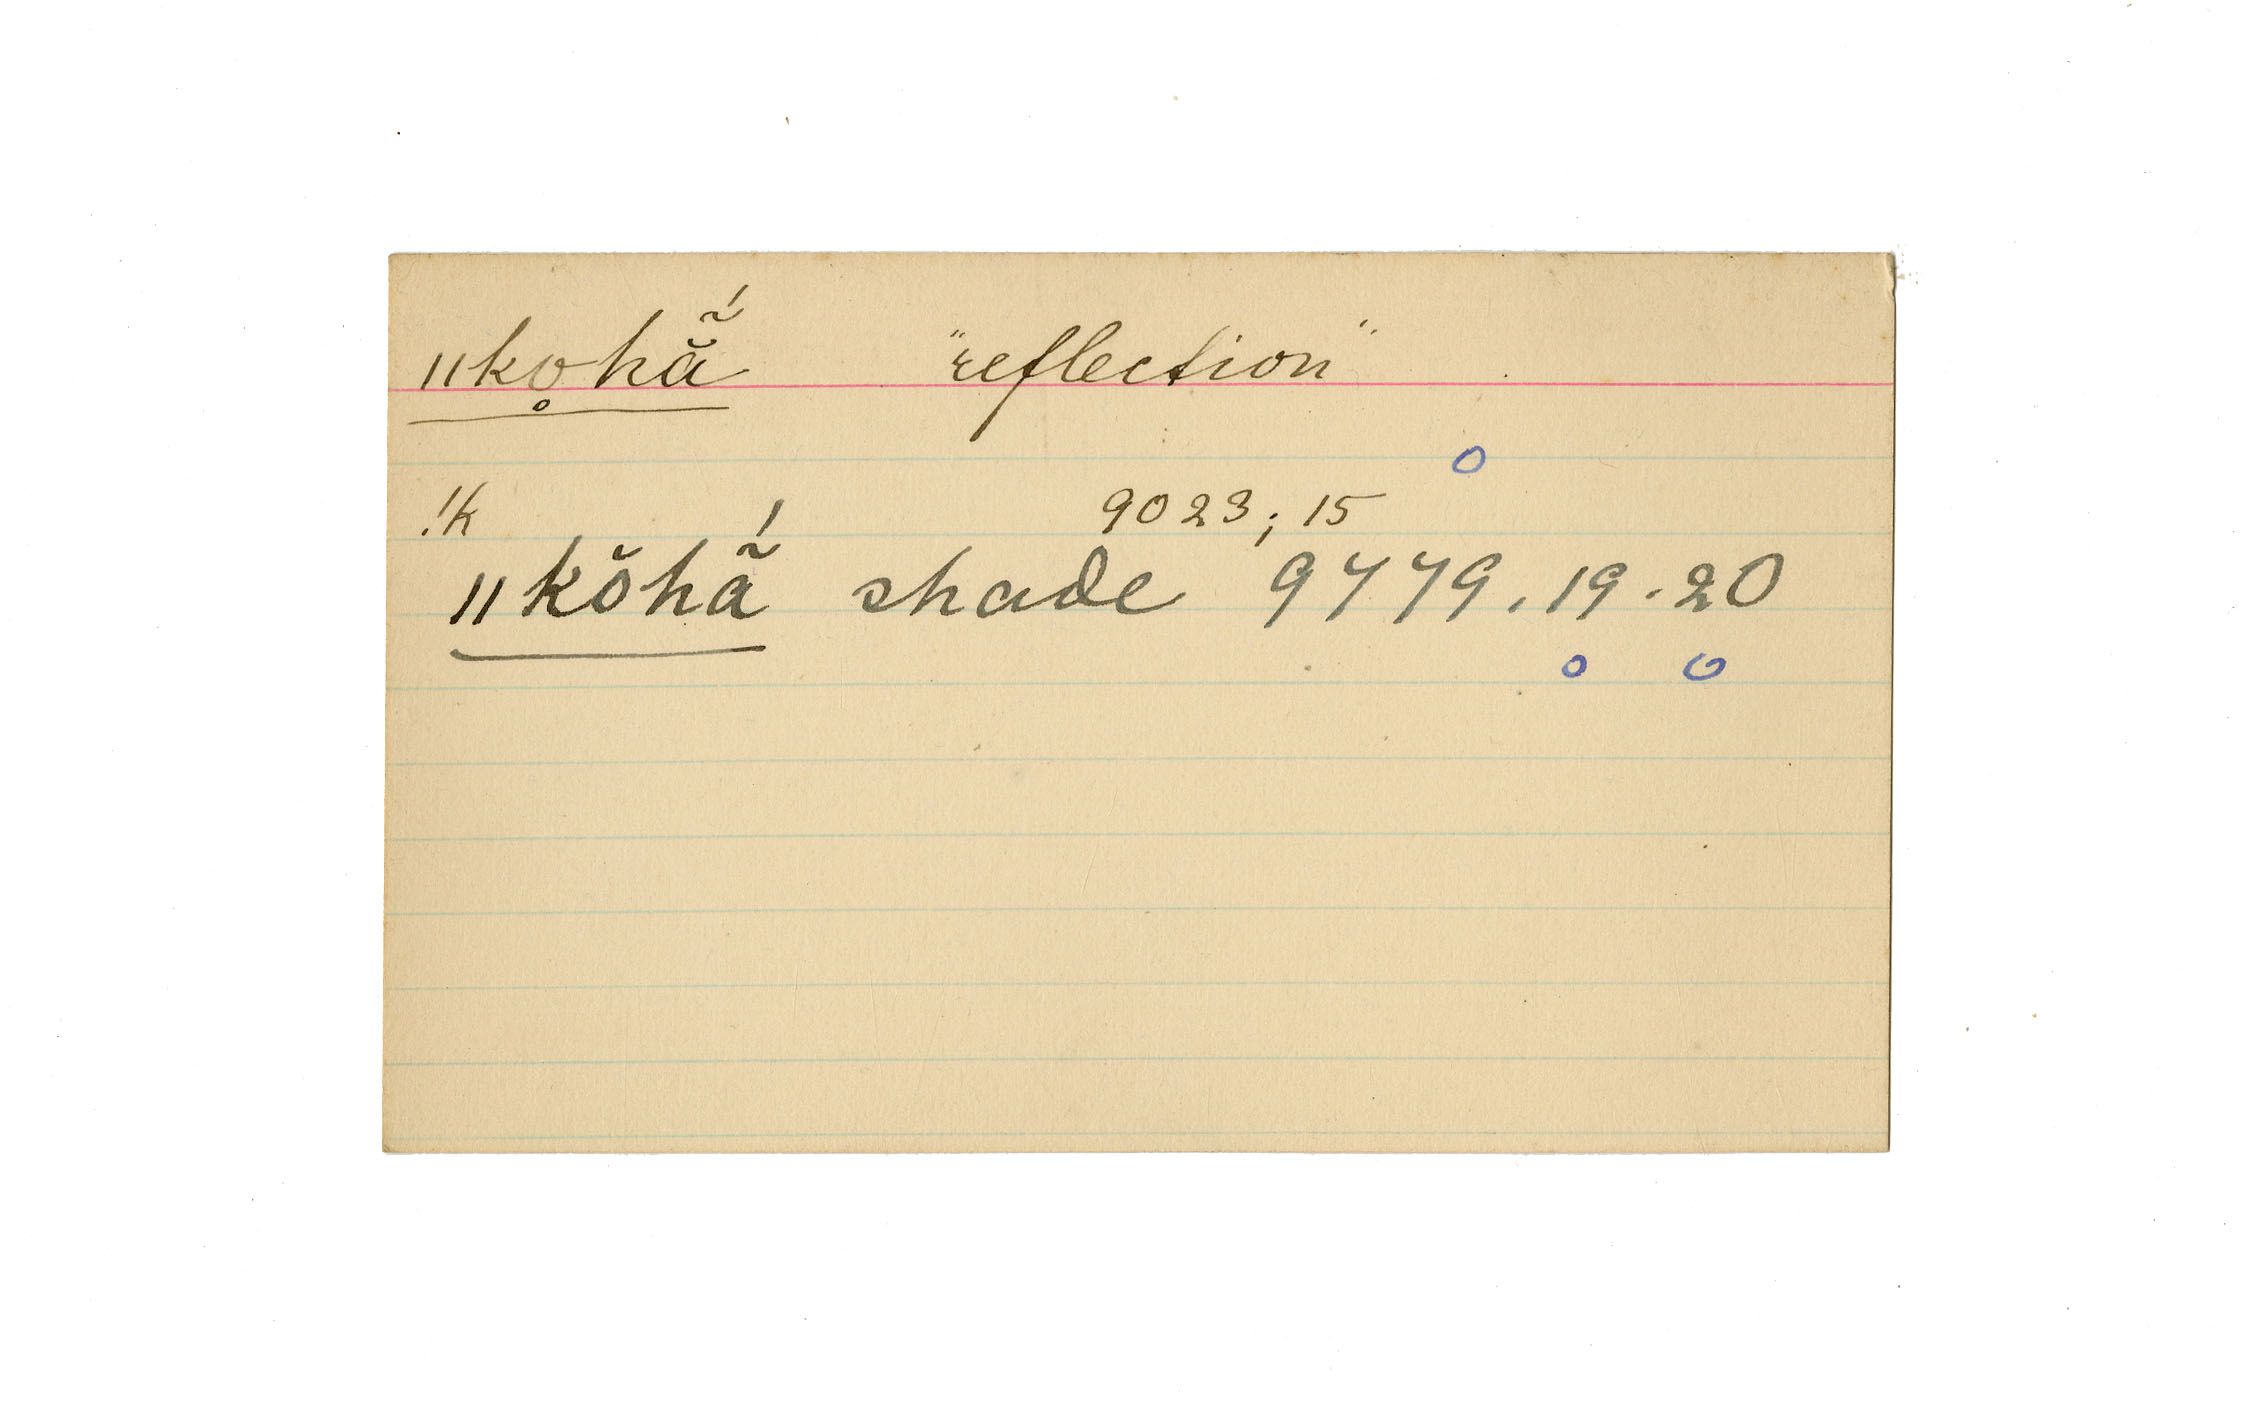 ǁko̥hã̆́ "reflection"
!k 9023; 15
ǁkŏhã̆́ shade 9779. 19. 20